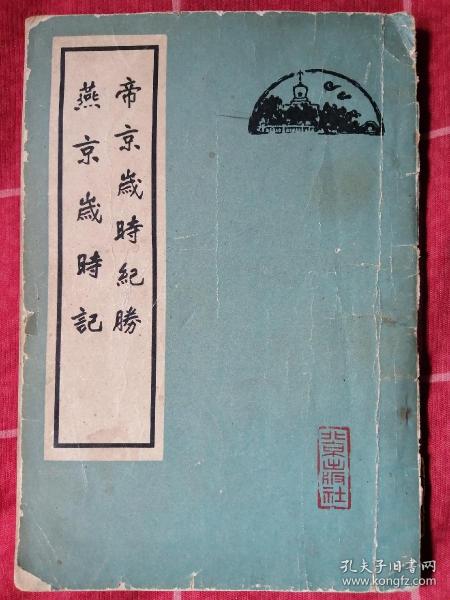 帝京歲時紀勝
燕京歲時記
北京出版社
孔夫子旧书网
www.kongfz.com